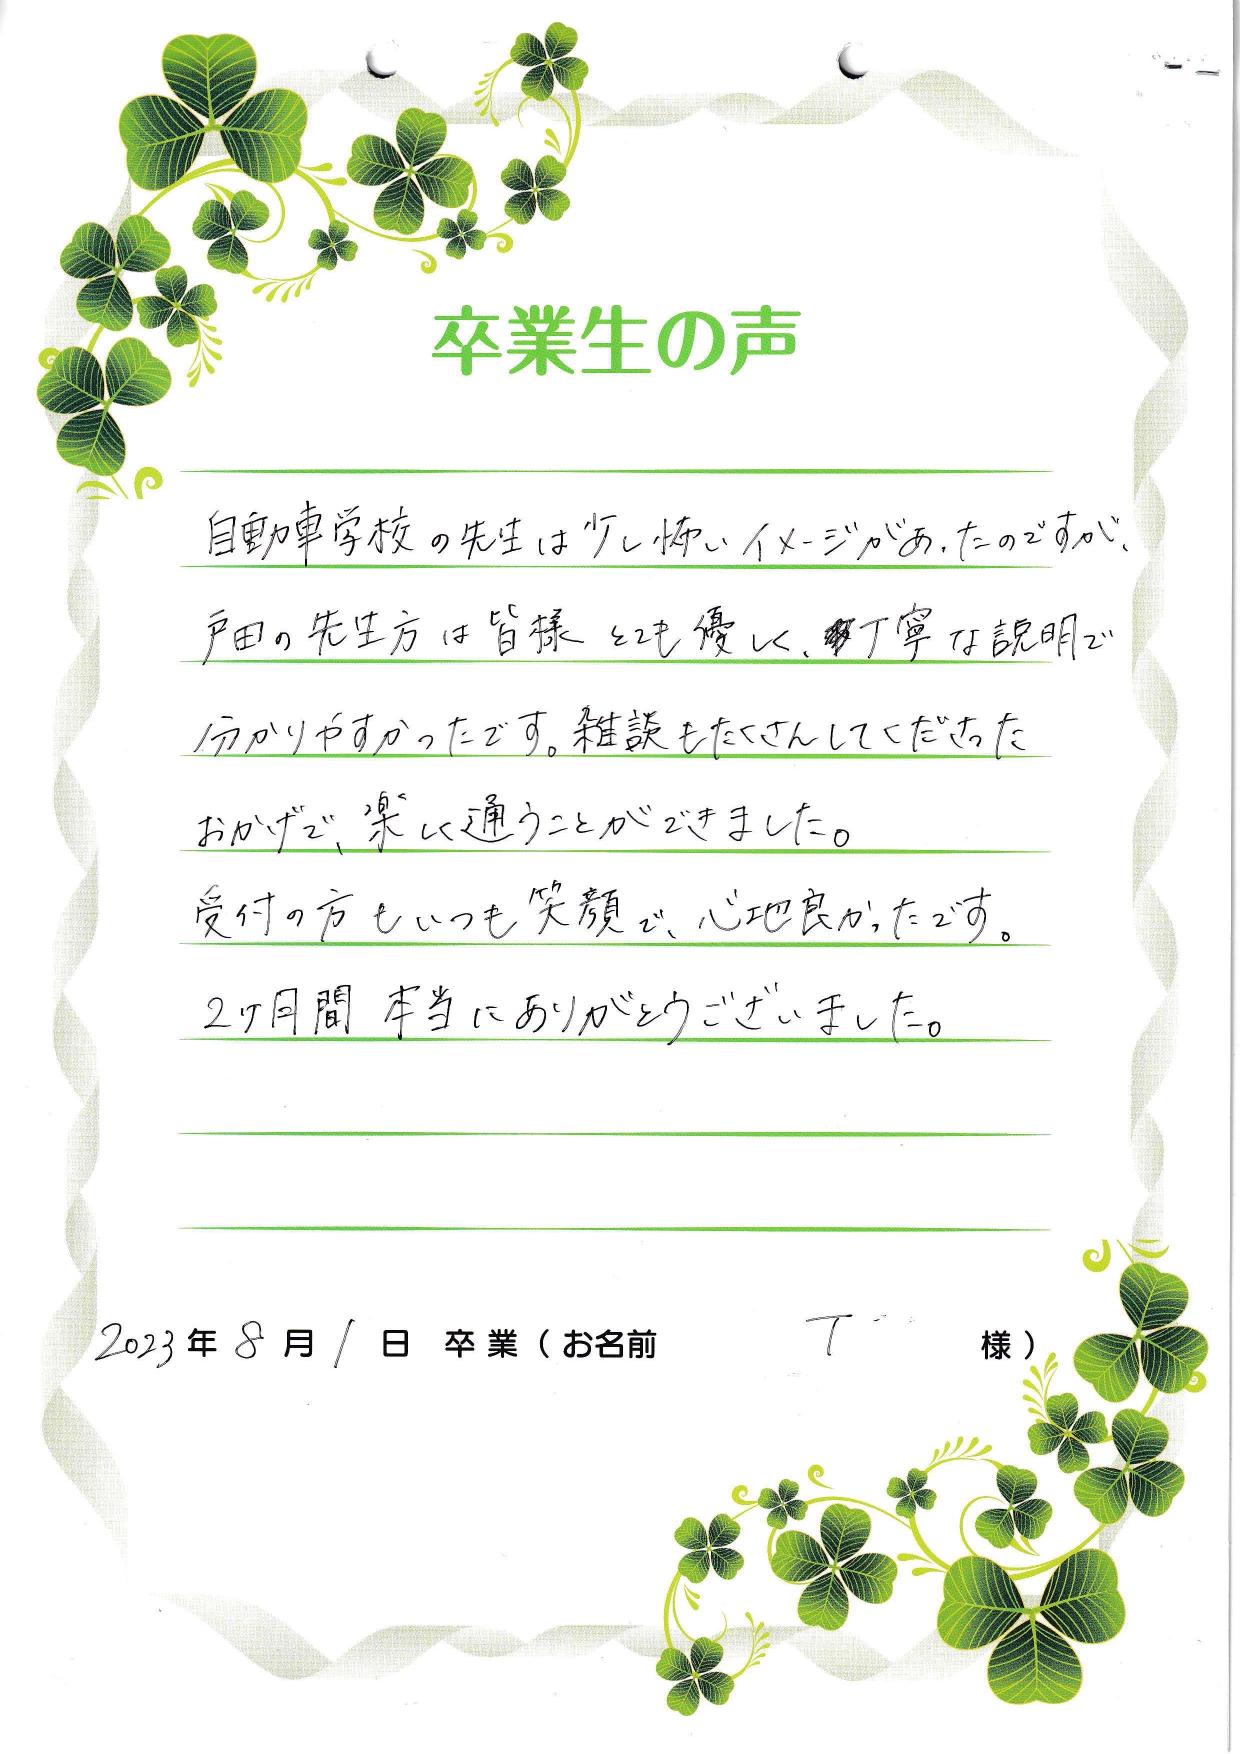 卒業生の声
自動車学校の先生は少し怖いイメージがあったのですが、
戸田の先生方は皆様とても優しく、丁寧な説明で
分かりやすかったです。雑談もたくさんしてくださった
おかげで、楽しく通うことができました。
受付の方もいつも笑顔で、心地良かったです。
2ヶ月間 本当にありがとうございました。
2023年 8月 1日 卒業（お名前 T 様）